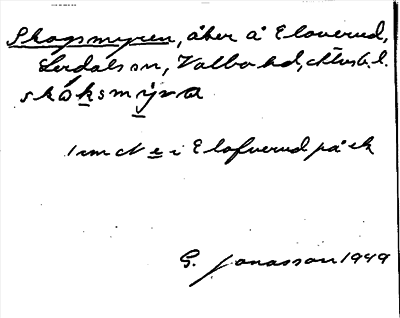 Skogsmyren, åker å Eloverud,
Lerdals sn, Valbo hd, Älvsb. l.
skóksmỳra
1 km N e i Elofverud på ek
G. Jonasson 1949